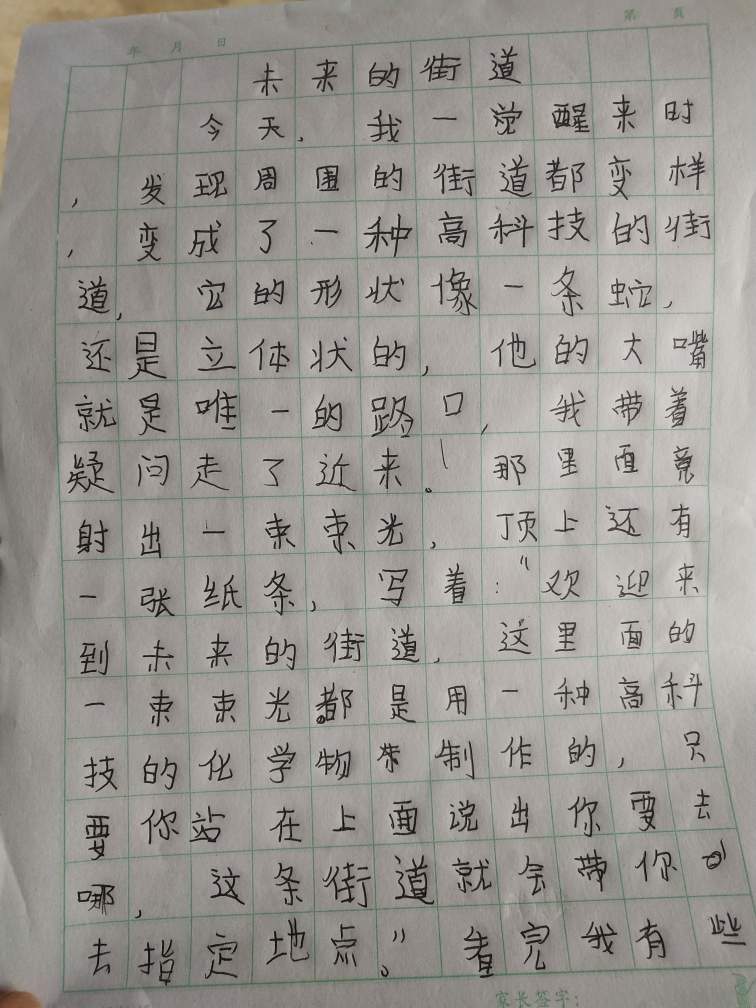 年 月 日 第 页
未来的街道
今天，我一觉醒来时
，发现周围的街道都变样
，变成了一种高科技的街
道，它的形状像一条蛇，
还是立体状的，他的大嘴
就是唯一的路口，我带着
疑问走了近来。那里面竟
射出一束束光，顶上还有
一张纸条，写着：“欢迎来
到未来的街道，这里面的
一束束光都是用一种高科
技的化学物制作的，只
要你站在上面说出你要去
哪，这条街道就会带你
去指定地点。”看完我有些
家长签字：